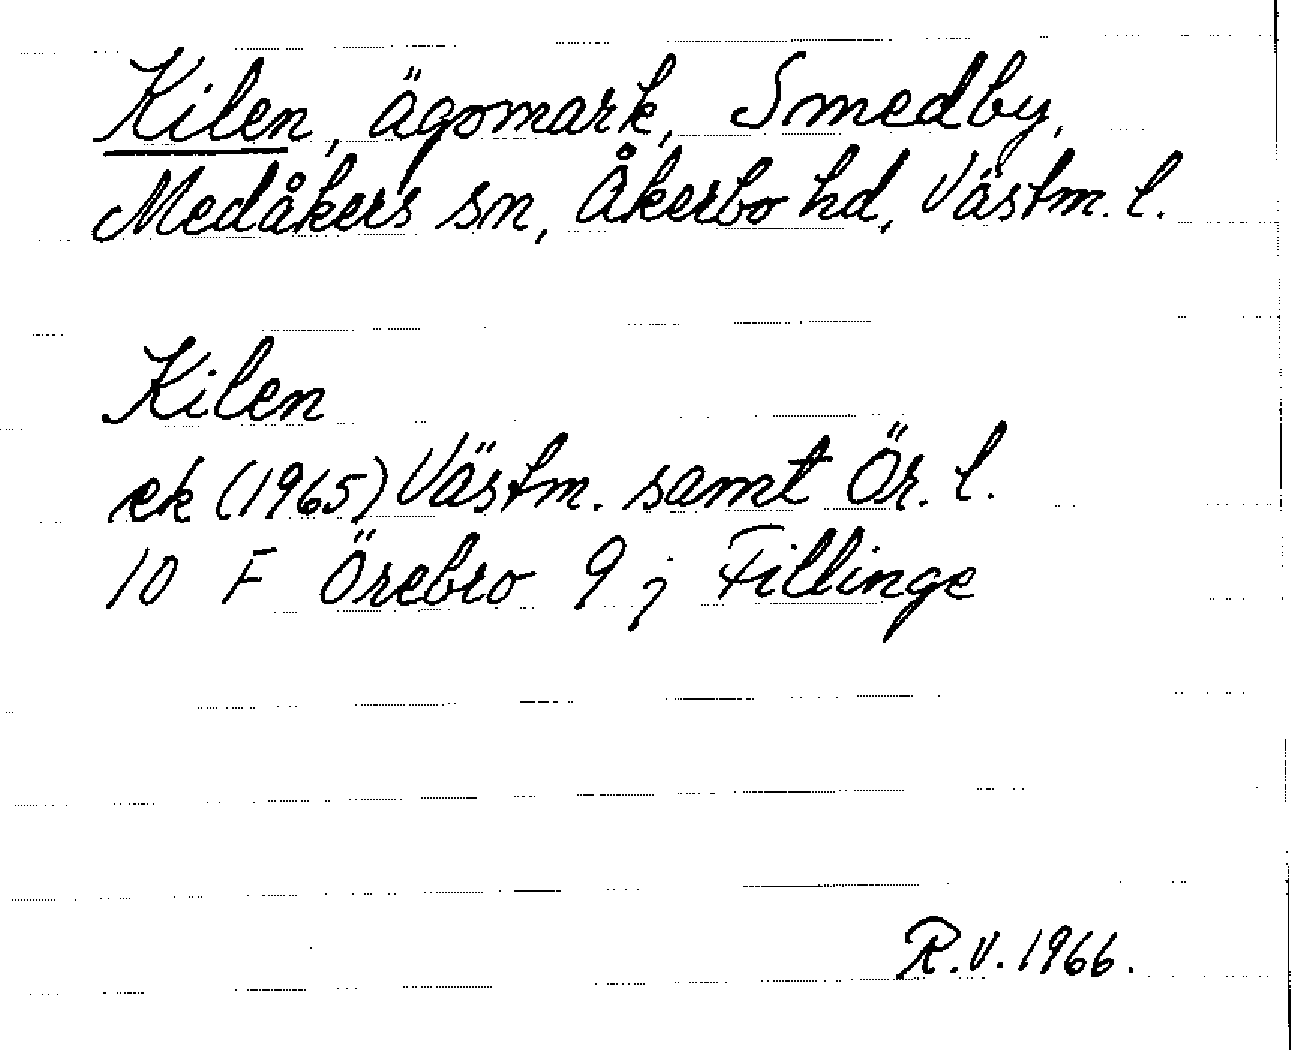 Kilen, ägomark, Smedby,
Medåkers sn, Åkerbo hd, Västm. l.
Kilen
ek (1965) Västm. samt Ör. l.
10 F Örebro 9 j Fillinge
R.V. 1966.